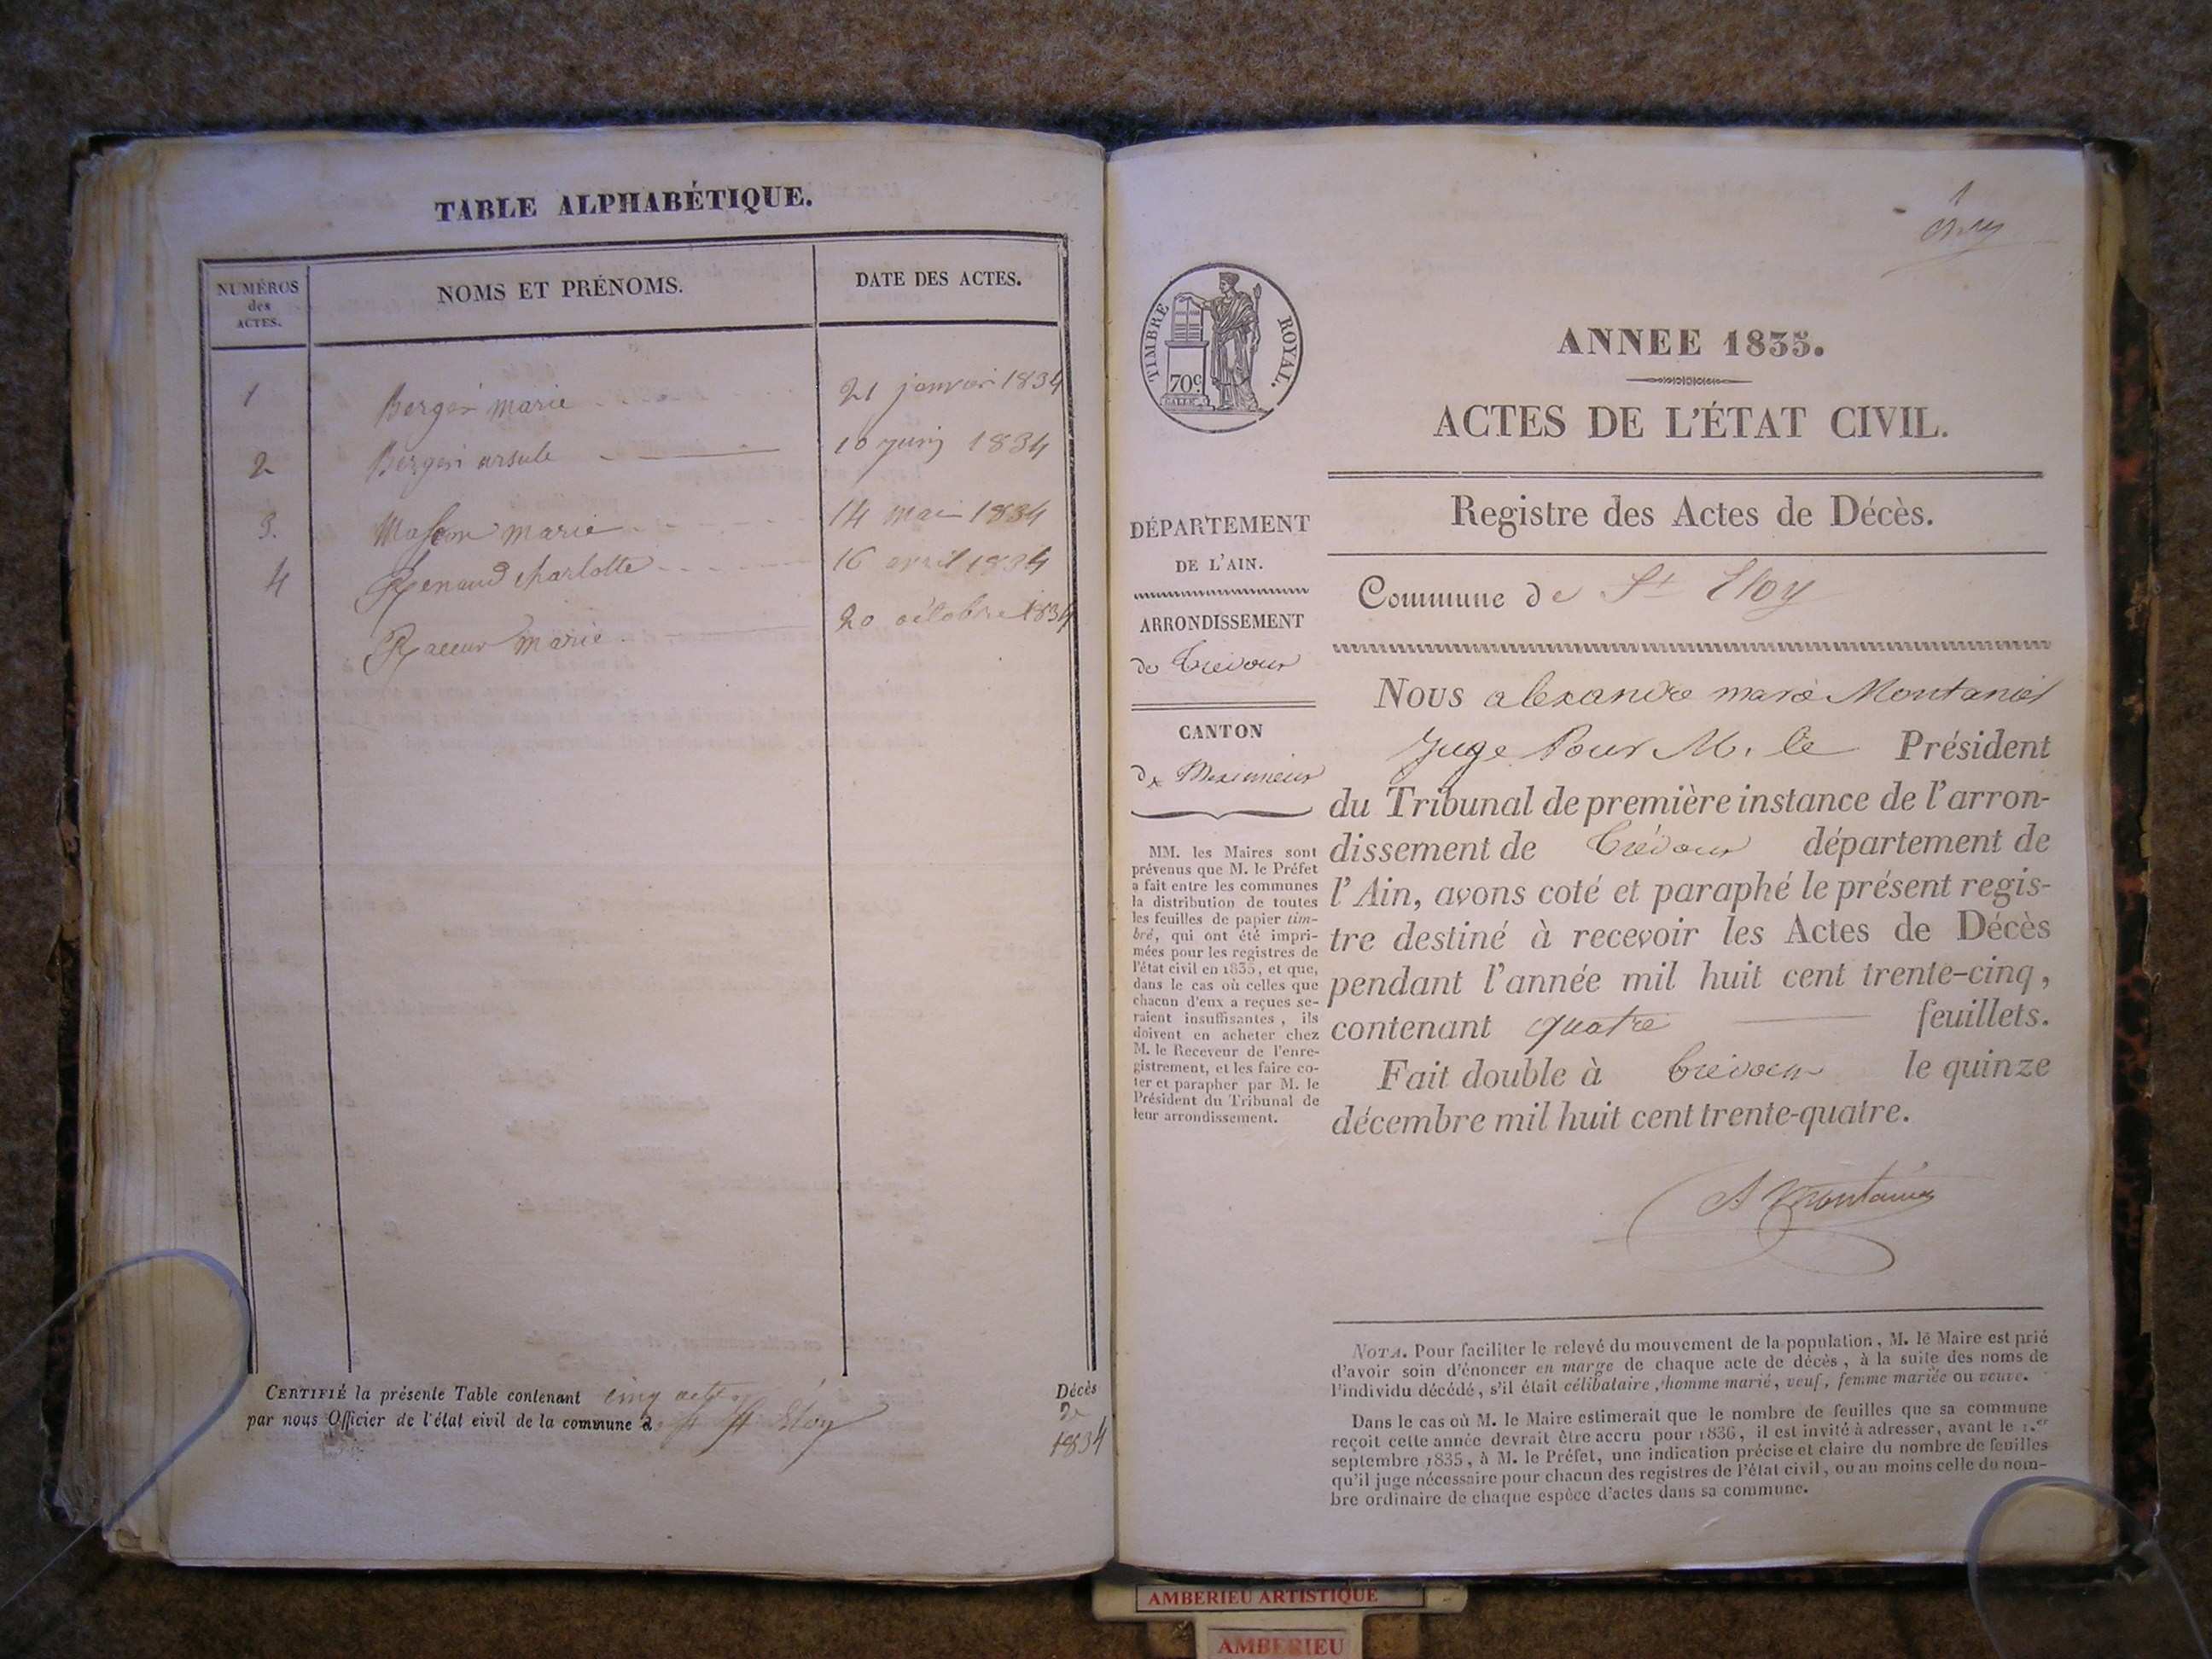 TABLE ALPHABÉTIQUE.
NUMÉROS
des
ACTES.
NOMS ET PRÉNOMS.
DATE DES ACTES.
1 Berger marie 21 janvier 1834
2 Berger ursule 10 juin 1834
3. Masson marie 14 mai 1834
4 Renaud charlotte 16 avril 1834
marie 20 octobre 1834
CERTIFIÉ la présente Table contenant cinq actes
par nous Officier de l'état civil de la commune de St Eloy
Décès
de
1834
1
TIMBRE ROYAL.
70c.
ANNEE 1835.
ACTES DE L'ÉTAT CIVIL.
Registre des Actes de Décès.
Commune de St Eloy
DÉPARTEMENT
DE L'AIN.
ARRONDISSEMENT
de Trévoux
CANTON
de Meximieux
MM. les Maires sont
prévenus que M. le Préfet
a fait entre les communes
la distribution de toutes
les feuilles de papier tim-
bré, qui ont été impri-
mées pour les registres de
l'état civil en 1835, et que,
dans le cas où celles que
chacun d'eux a reçues se-
raient insuffisantes, ils
doivent en acheter chez
M. le Receveur de l'enre-
gistrement, et les faire co-
ter et parapher par M. le
Président du Tribunal de
leur arrondissement.
Nous alexandre marie Montanier
Juge Pour M. le Président
du Tribunal de première instance de l'arron-
dissement de Trévoux département de
l'Ain, avons coté et paraphé le présent regis-
tre destiné à recevoir les Actes de Décès
pendant l'année mil huit cent trente-cinq,
contenant quatre feuillets.
Fait double à Trévoux le quinze
décembre mil huit cent trente-quatre.
A Montanier
NOTA. Pour faciliter le relevé du mouvement de la population, M. le Maire est prié
d'avoir soin d'énoncer en marge de chaque acte de décès, à la suite des noms de
l'individu décédé, s'il était célibataire, homme marié, veuf, femme mariée ou veuve.
Dans le cas où M. le Maire estimerait que le nombre de feuilles que sa commune
reçoit cette année devrait être accru pour 1836, il est invité à adresser, avant le 1.er
septembre 1835, à M. le Préfet, une indication précise et claire du nombre de feuilles
qu'il juge nécessaire pour chacun des registres de l'état civil, ou au moins celle du nom-
bre ordinaire de chaque espèce d'actes dans sa commune.
AMBERIEU ARTISTIQUE
AMBERIEU